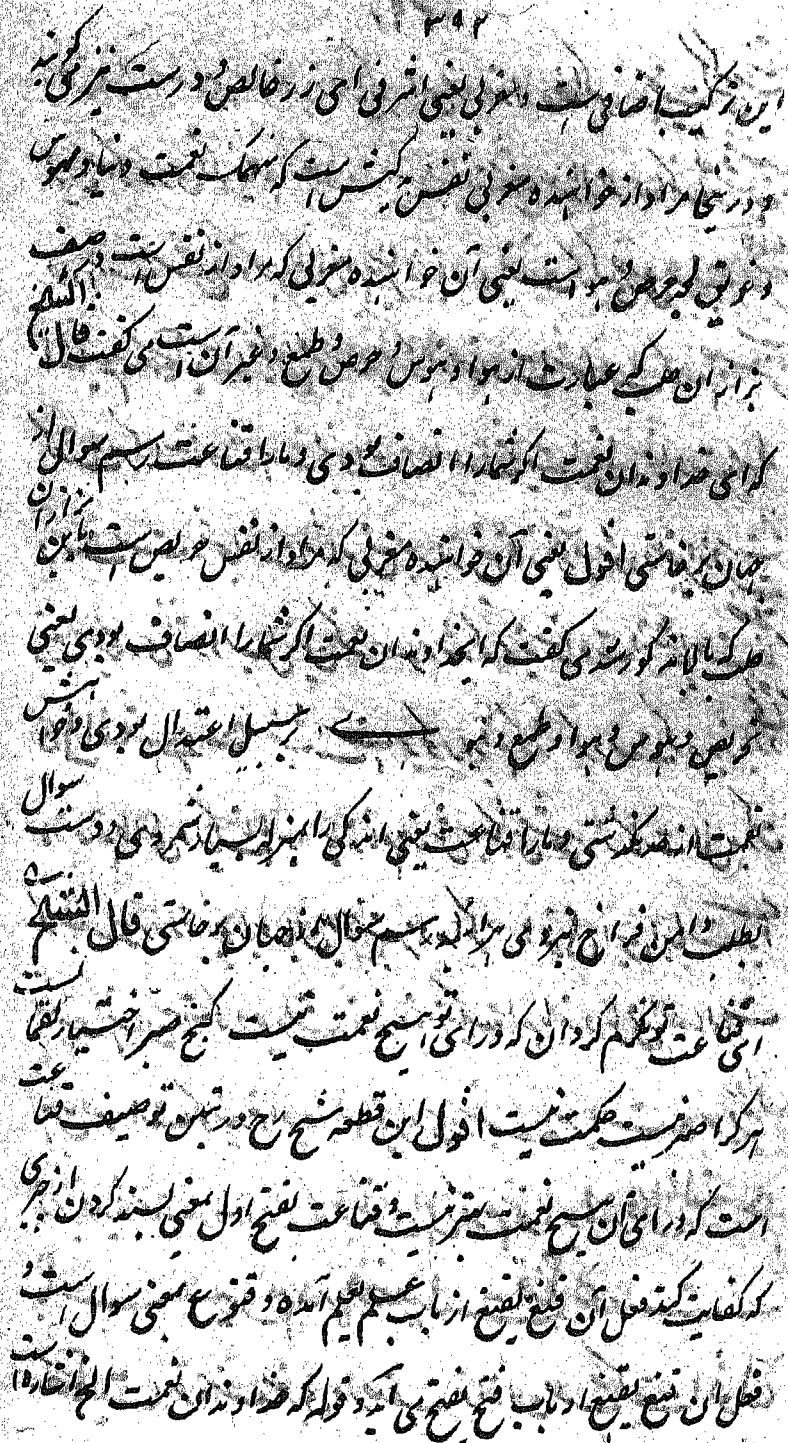 ۳۹۲
این ترکیب اضافی است و مغربی یعنی اشرفی ای زر خالص و درست نیز می گویند
و درینجا مراد از خواهنده مغربی نفس است که نعمت دنیا و
و حرص و هوا است یعنی آن خواهنده مغربی که مراد از نفس است در صف
بزازان حلب که عبارت از هوا و هوس و حرص و طمع و غیر آن است می گفت قال الشیخ
که ای خداوندان نعمت اگر شما را انصاف بودی و ما را قناعت رسم سوال از
جهان برخاستی اقول یعنی آن خواهنده مغربی که مراد از نفس حریص است باین بزازان
حلب که بالا مذکور شد می گفت که ای خداوندان نعمت اگر شما را انصاف بودی یعنی
حرص و هوس و هوا و طمع و بر سبیل اعتدال بودی و خواهش
نعمت از حد نگذشتی و ما را قناعت یعنی اندکی را بمنزله بسیار شمردمی و دست سوال
بطلب و دامن فراخ نبردمی هر آینه رسم سوال از جهان برخاستی قال الشیخ ره
ای قناعت توانگرم گردان که ورای تو هیچ نعمت نیست کنج صبر اختیار لقمانست
هر کرا صبر نیست حکمت نیست اقول این قطعه شیخ رح در توصیف قناعت
است که ورای آن هیچ نعمت بهتر نیست و قناعت بفتح اول بمعنی بسنده کردن از چیزی
که کفایت کند فعل آن قنع یقنع از باب علم یعلم آمده و قنوع بمعنی سوال است و
فعل آن قنع یقنع از باب فتح یفتح می آید و قوله که خداوندان نعمت الخ اشاره است